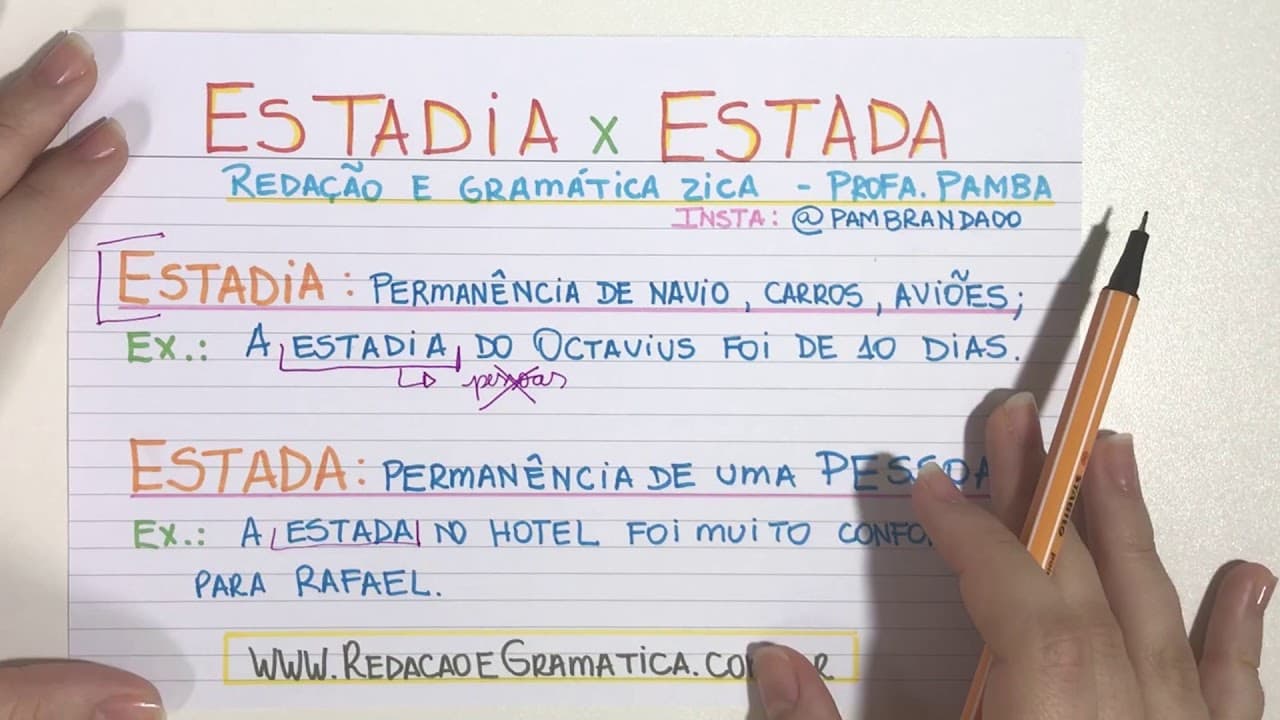 ESTADIA x ESTADA
REDAÇÃO E GRAMÁTICA ZICA - PROFA. PAMBA
INSTA: @PAMBRANDAOO
ESTADIA: PERMANÊNCIA DE NAVIO, CARROS, AVIÕES;
EX.: A ESTADIA DO OCTAVIUS FOI DE 10 DIAS.
pessoas
ESTADA: PERMANÊNCIA DE UMA PESSOA
EX.: A ESTADA NO HOTEL FOI MUITO
PARA RAFAEL.
STABILO